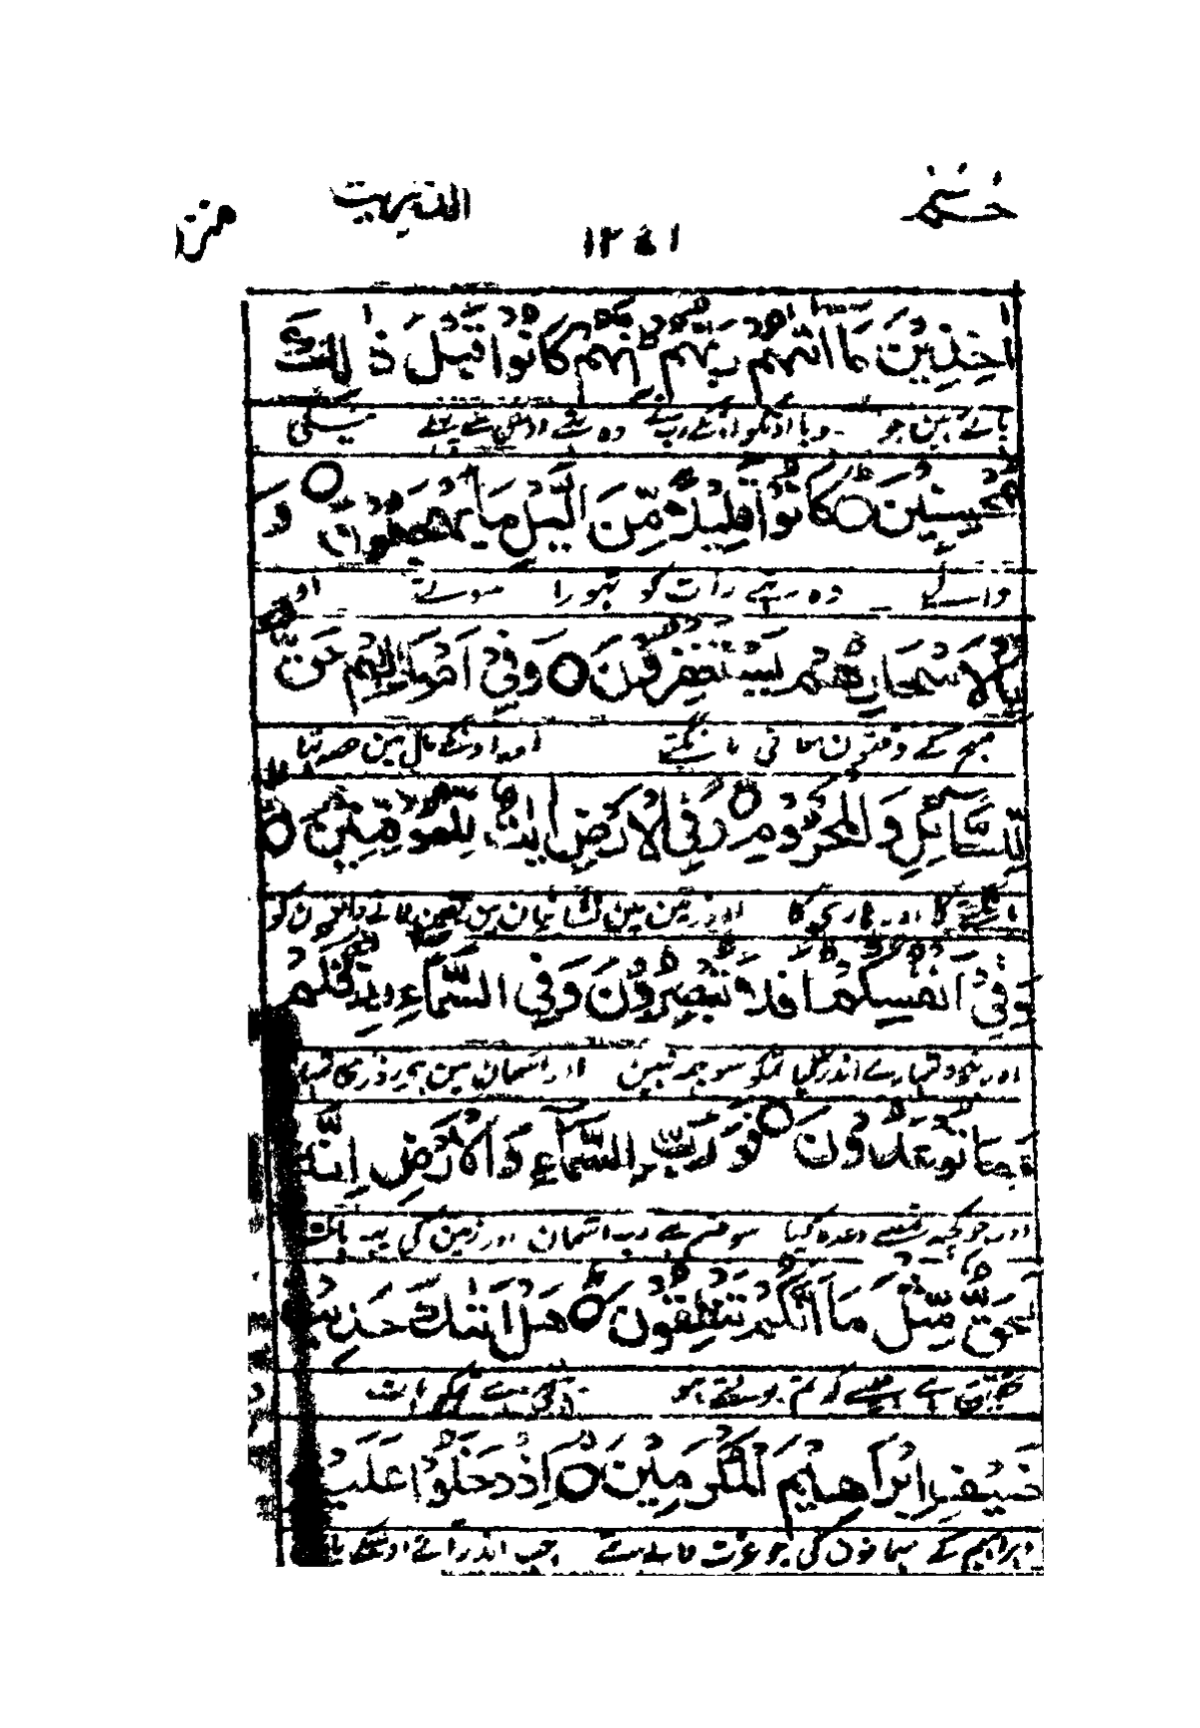 حٰم
الذٰریٰت
اٰخِذِيْنَ مَاۤ اٰتٰىهُمْ رَبُّهُمْ اِنَّهُمْ كَانُوْا قَبْلَ ذٰلِكَ
پاتے ہین جو دیا اونکو اونکے رب نے وہ تھے اوس سے پہلے نیکی
مُحْسِنِيْنَ كَانُوْا قَلِيْلًا مِّنَ الَّيْلِ مَا يَهْجَعُوْنَ وَ
والے وہ تھے رات کو تہوڑا سوتے اور
بِالْاَسْحَارِ هُمْ يَسْتَغْفِرُوْنَ وَفِيْۤ اَمْوَالِهِمْ حَقٌّ
صبح کے وقتون معافی مانگتے اور اونکے مال مین حصہ تہا
لِّلسَّآئِلِ وَالْمَحْرُوْمِ وَفِي الْاَرْضِ اٰيٰتٌ لِّلْمُوْقِنِيْنَ
مانگتے کا اور ہارے کا اور زمین مین نشانیان ہین یقین لانے والون کو
وَفِيْۤ اَنْفُسِكُمْ اَفَلَا تُبْصِرُوْنَ وَفِي السَّمَآءِ رِزْقُكُمْ
اور خود تمہارے اندر کیا تمکو سوجہ نہین اور آسمان مین ہے روزی تمہاری
وَمَا تُوْعَدُوْنَ فَوَرَبِّ السَّمَآءِ وَالْاَرْضِ اِنَّهٗ
اور جو کچہ تمسے وعدہ کیا سو قسم ہے رب آسمان اور زمین کی یہ بات
لَحَقٌّ مِّثْلَ مَاۤ اَنَّكُمْ تَنْطِقُوْنَ هَلْ اَتٰىكَ حَدِيْثُ
تحقیق ہے جیسے کہ تم بولتے ہو تجکو بات
ضَيْفِ اِبْرٰهِيْمَ الْمُكْرَمِيْنَ اِذْ دَخَلُوْا عَلَيْهِ
ابراہیم کے مہمانون کی جو عزت والے تھے جب اندر آئے اوسکے پاس